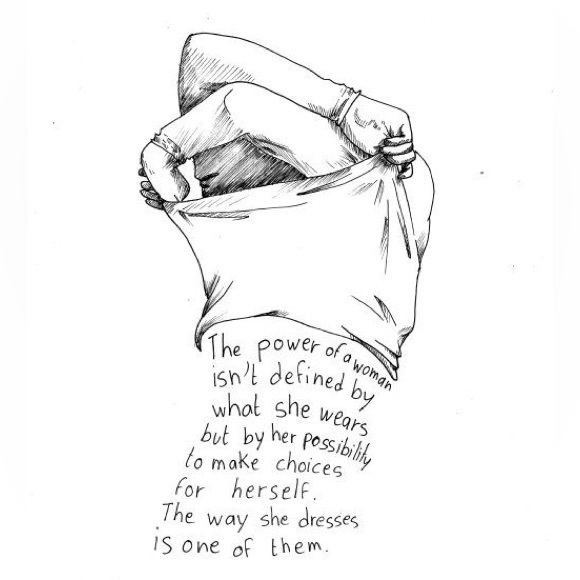 The power of a woman
isn't defined by
what she wears
but by her possibility
to make choices
for herself.
The way she dresses
is one of them.